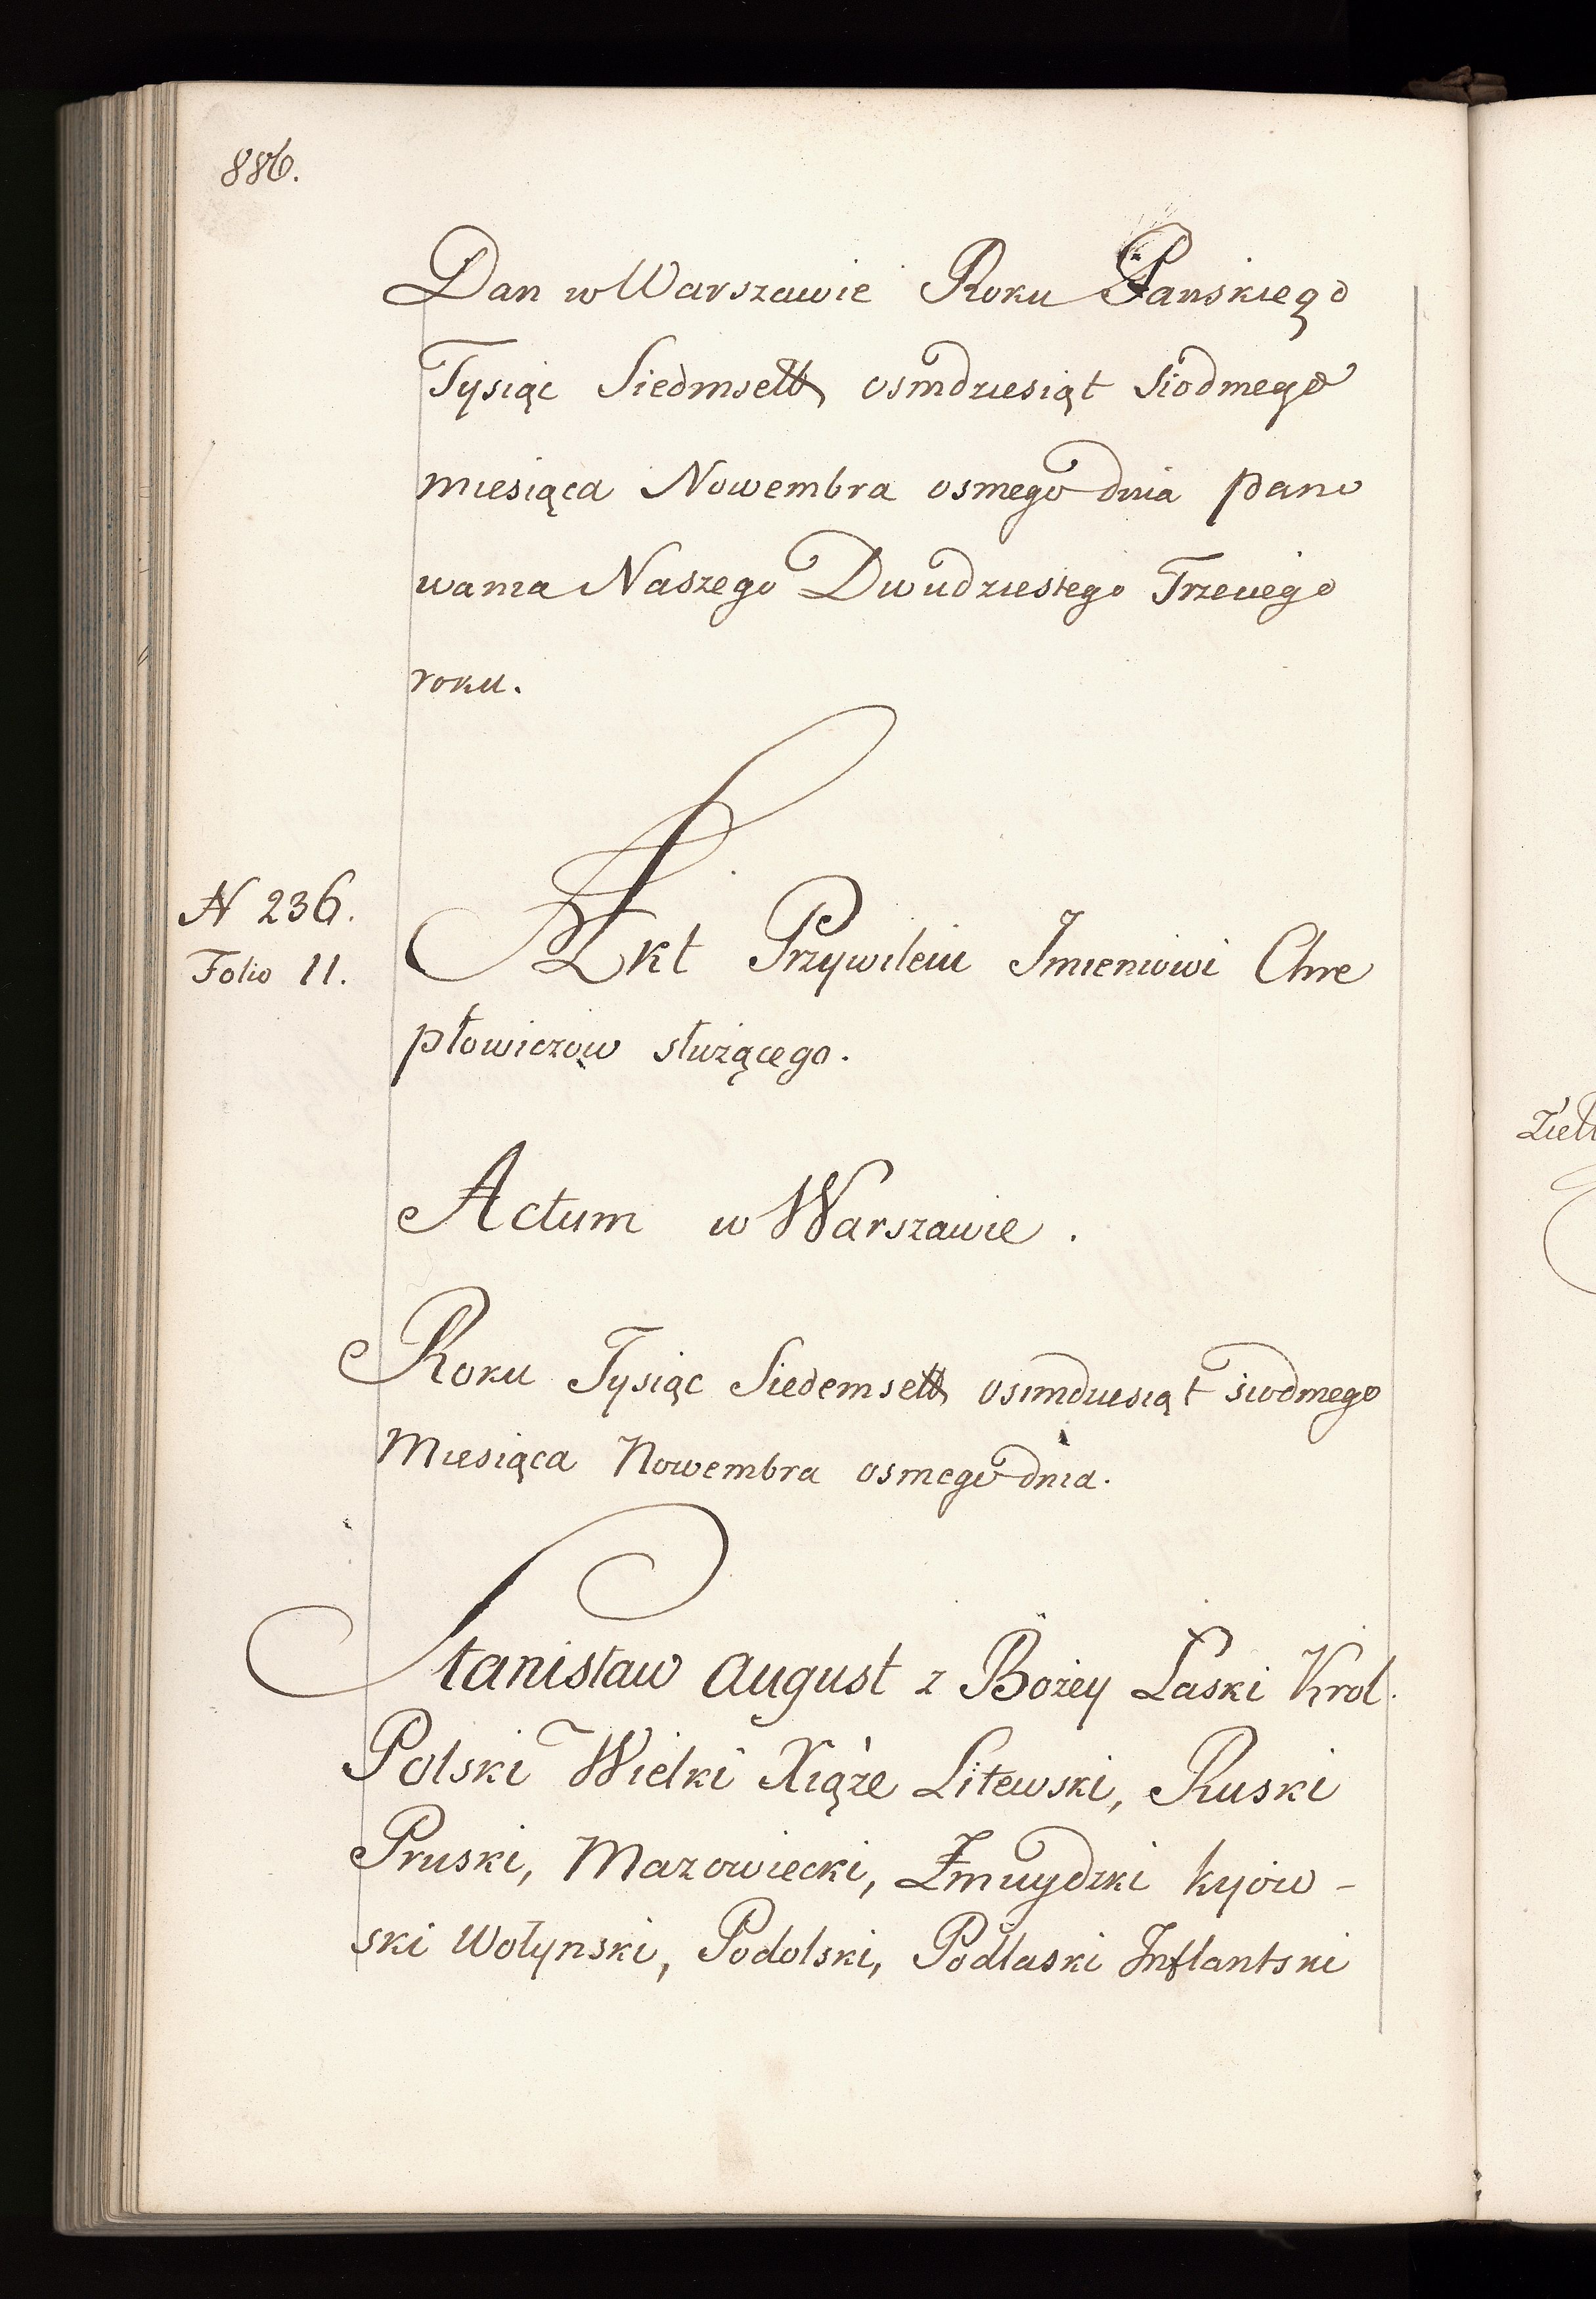 886.
Dan w Warszawie Roku Panskiego
Tysiąc Siedmsett osmdziesiąt Siodmego
miesiąca Nowembra osmego dnia pano
wania Naszego Dwudziestego Trzeciego
roku.
N 236.
Folio 11.
Akt Przywileiu Imieniowi Chre
płowiczow służącego.
Actum w Warszawie.
Roku Tysiąc Siedemsett osimdziesiąt siodmego
Miesiąca Nowembra osmego dnia.
Stanisław August z Bożey Łaski Krol
Polski Wielki Xiąże Litewski, Ruski
Pruski, Mazowiecki, Żmuydzki kyiow-
ski Wołynski, Podolski, Podlaski Inflantski